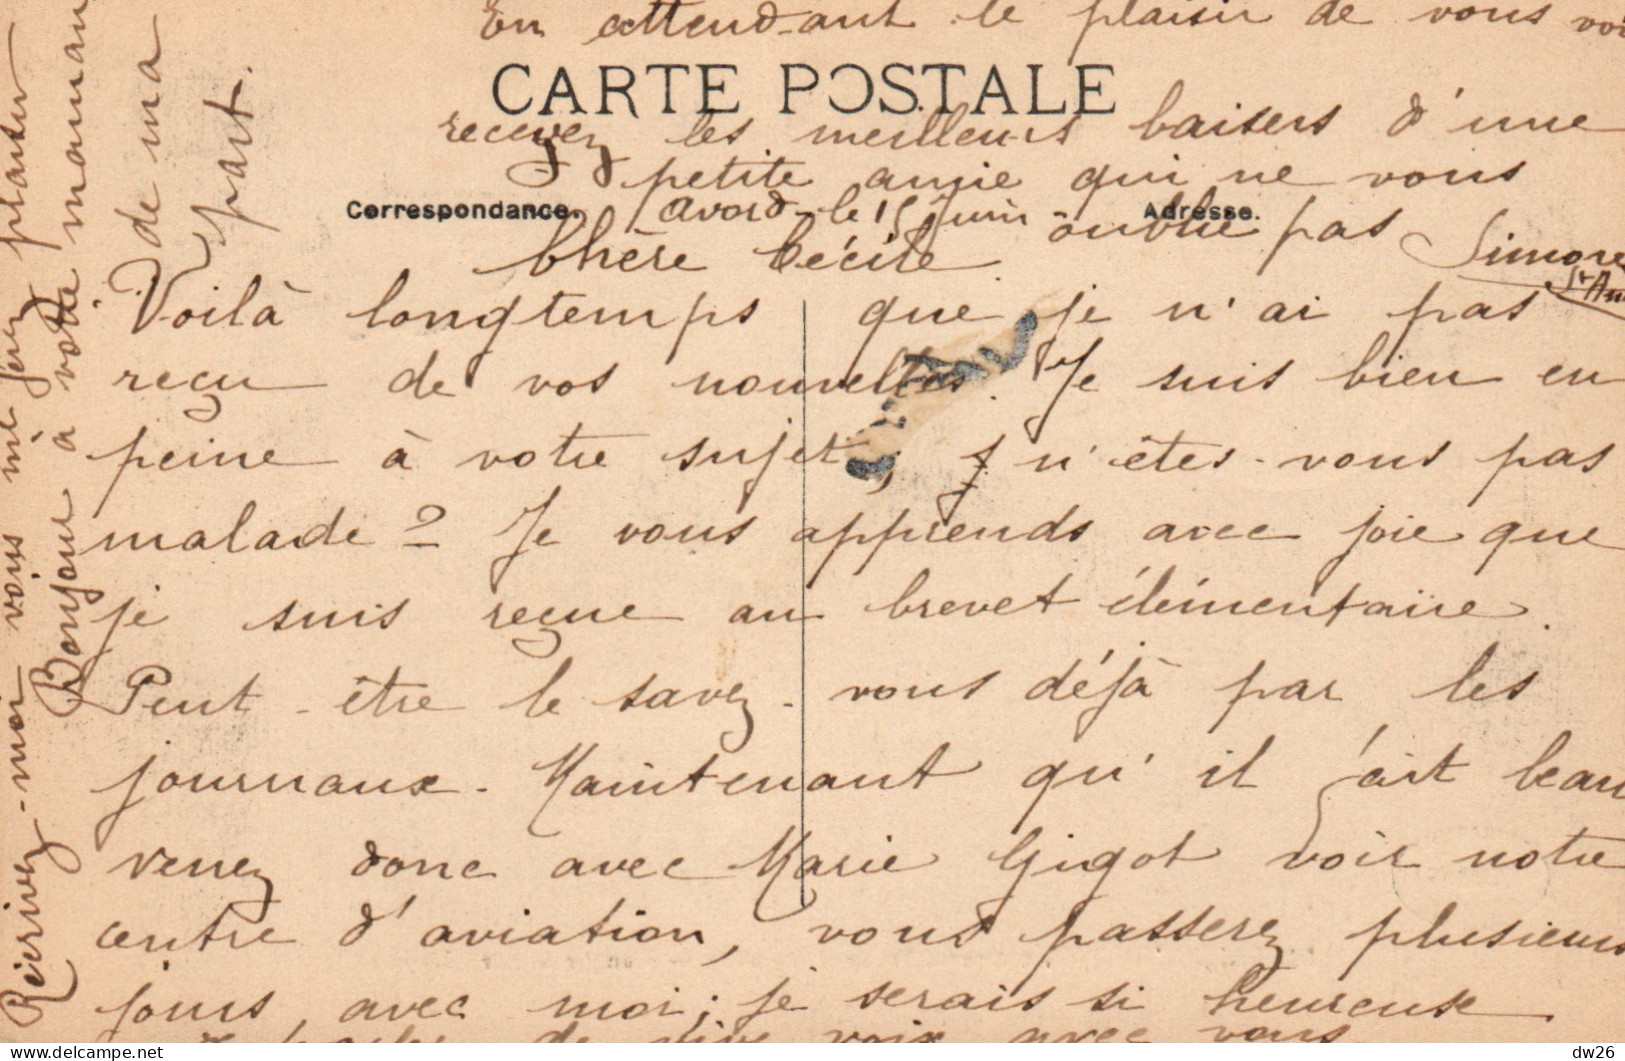 CARTE POSTALE
Correspondance.
Adresse.
Avord le 15 Juin
Chère Cécile
Voilà longtemps que je n'ai pas
reçu de vos nouvelles. Je suis bien en
peine à votre sujet, n'êtes-vous pas
malade? Je vous apprends avec joie que
je suis reçue au brevet élémentaire.
Peut-être le savez-vous déjà par les
journaux. Maintenant qu'il fait beau
venez donc avec Marie Gigot voir notre
centre d'aviation, vous passerez plusieurs
jours avec moi; je serais si heureuse
de vive voix avec vous
En attendant le plaisir de vous voir
recevez les meilleurs baisers d'une
petite amie qui ne vous
oublie pas Simone
Bonjour à votre maman
de ma
part.
vous me ferez plaisir